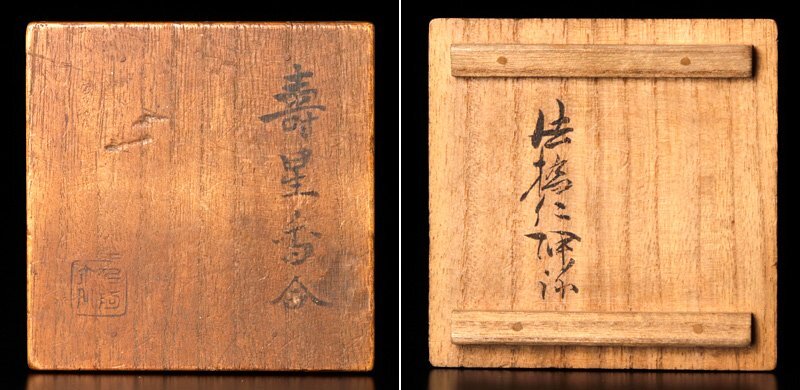 壽星香合
法橋仁阿弥